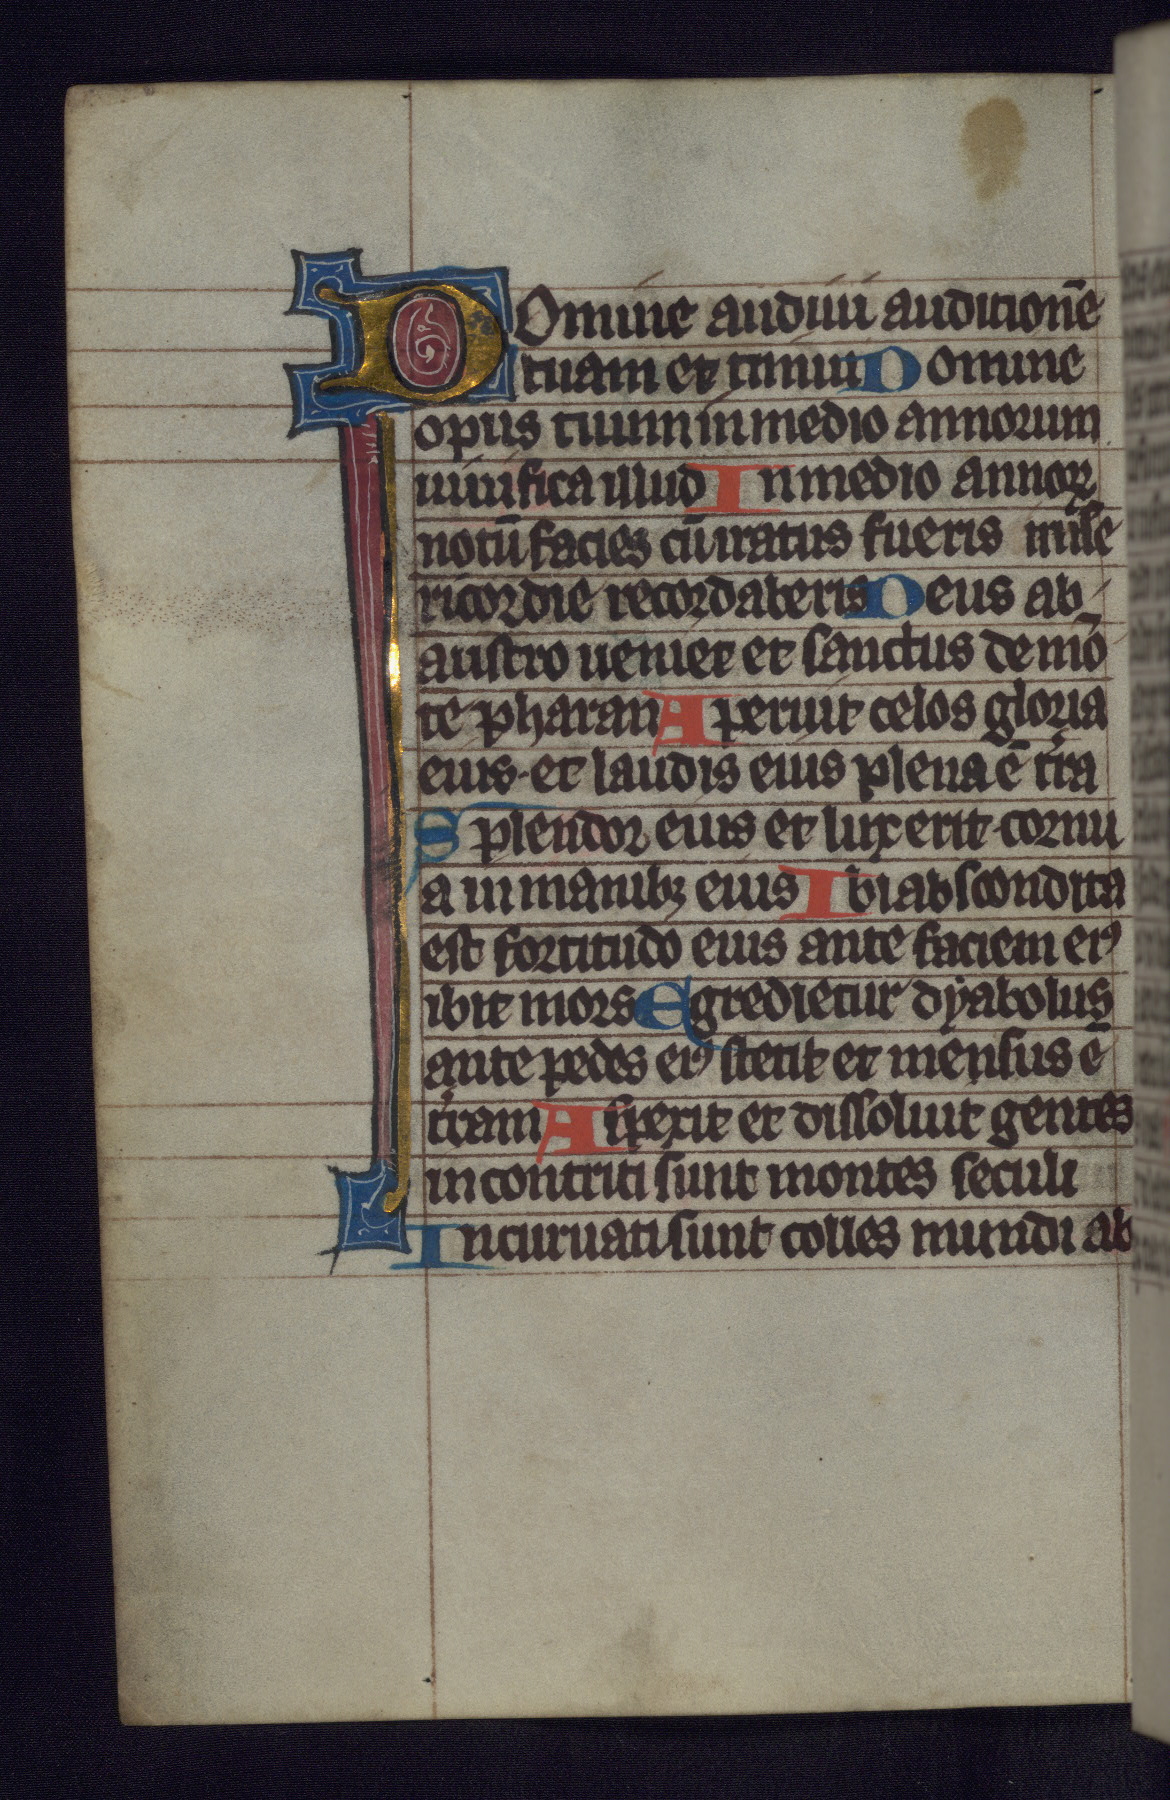 Domine audiui auditionē
tuam et timui Domine
opus tuum in medio annorum
uiuifica illud In medio annoꝝ
notū facies cū iratus fueris mīse
ricordie recordaberis Deus ab
austro ueniet et sanctus de mō
te pharan Aperuit celos gloria
eius et laudis eius plena ē tͥra
Splendor eius et lux erit cornu
a in manibꝫ eius Ibi abscondita
est fortitudo eius ante faciem eiꝰ
ibit mors Egredietur dyabolus
ante pedes eiꝰ stetit et mensus ē
tͥram Aspexit et dissoluit gentes
in contriti sunt montes seculi
Incuruati sunt colles mundi ab